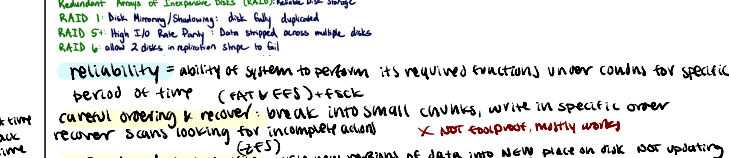 Redundant Arrays of Inexpensive Disks (RAID): Reliable Disk Storage
RAID 1: Disk Mirroring/Shadowing: disk fully duplicated
RAID 5+: High I/O Rate Parity: Data stripped across multiple disks
RAID 6: allow 2 disks in replication stripe to fail
reliability = ability of system to perform its required functions under condns for specific
period of time (FAT & FFS) + fsck
careful ordering & recover: break into small chunks, write in specific order
recover scans looking for incomplete actions X NOT foolproof, mostly works
time
time
(ZFS)
versions of data into NEW place on disk NOT updating